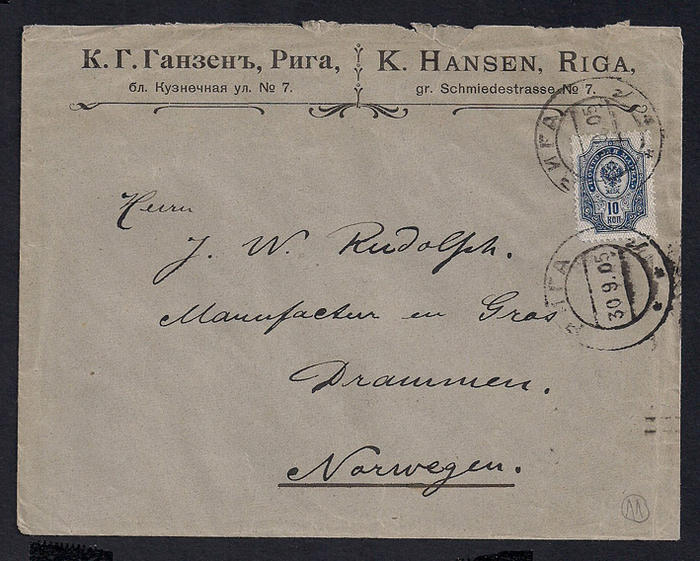 К. Г. Ганзенъ, Рига,
бл. Кузнечная ул. № 7.
K. HANSEN, RIGA,
gr. Schmiedestrasse № 7.
РИГА
РИГА
30.9.05
10
КОП
Herrn
J. W. Rudolph.
Manufactur en Gros
Drammen.
Norwegen.